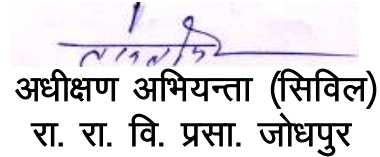 अधीक्षण अभियन्ता (सिविल)
रा. रा. वि. प्रसा. जोधपुर